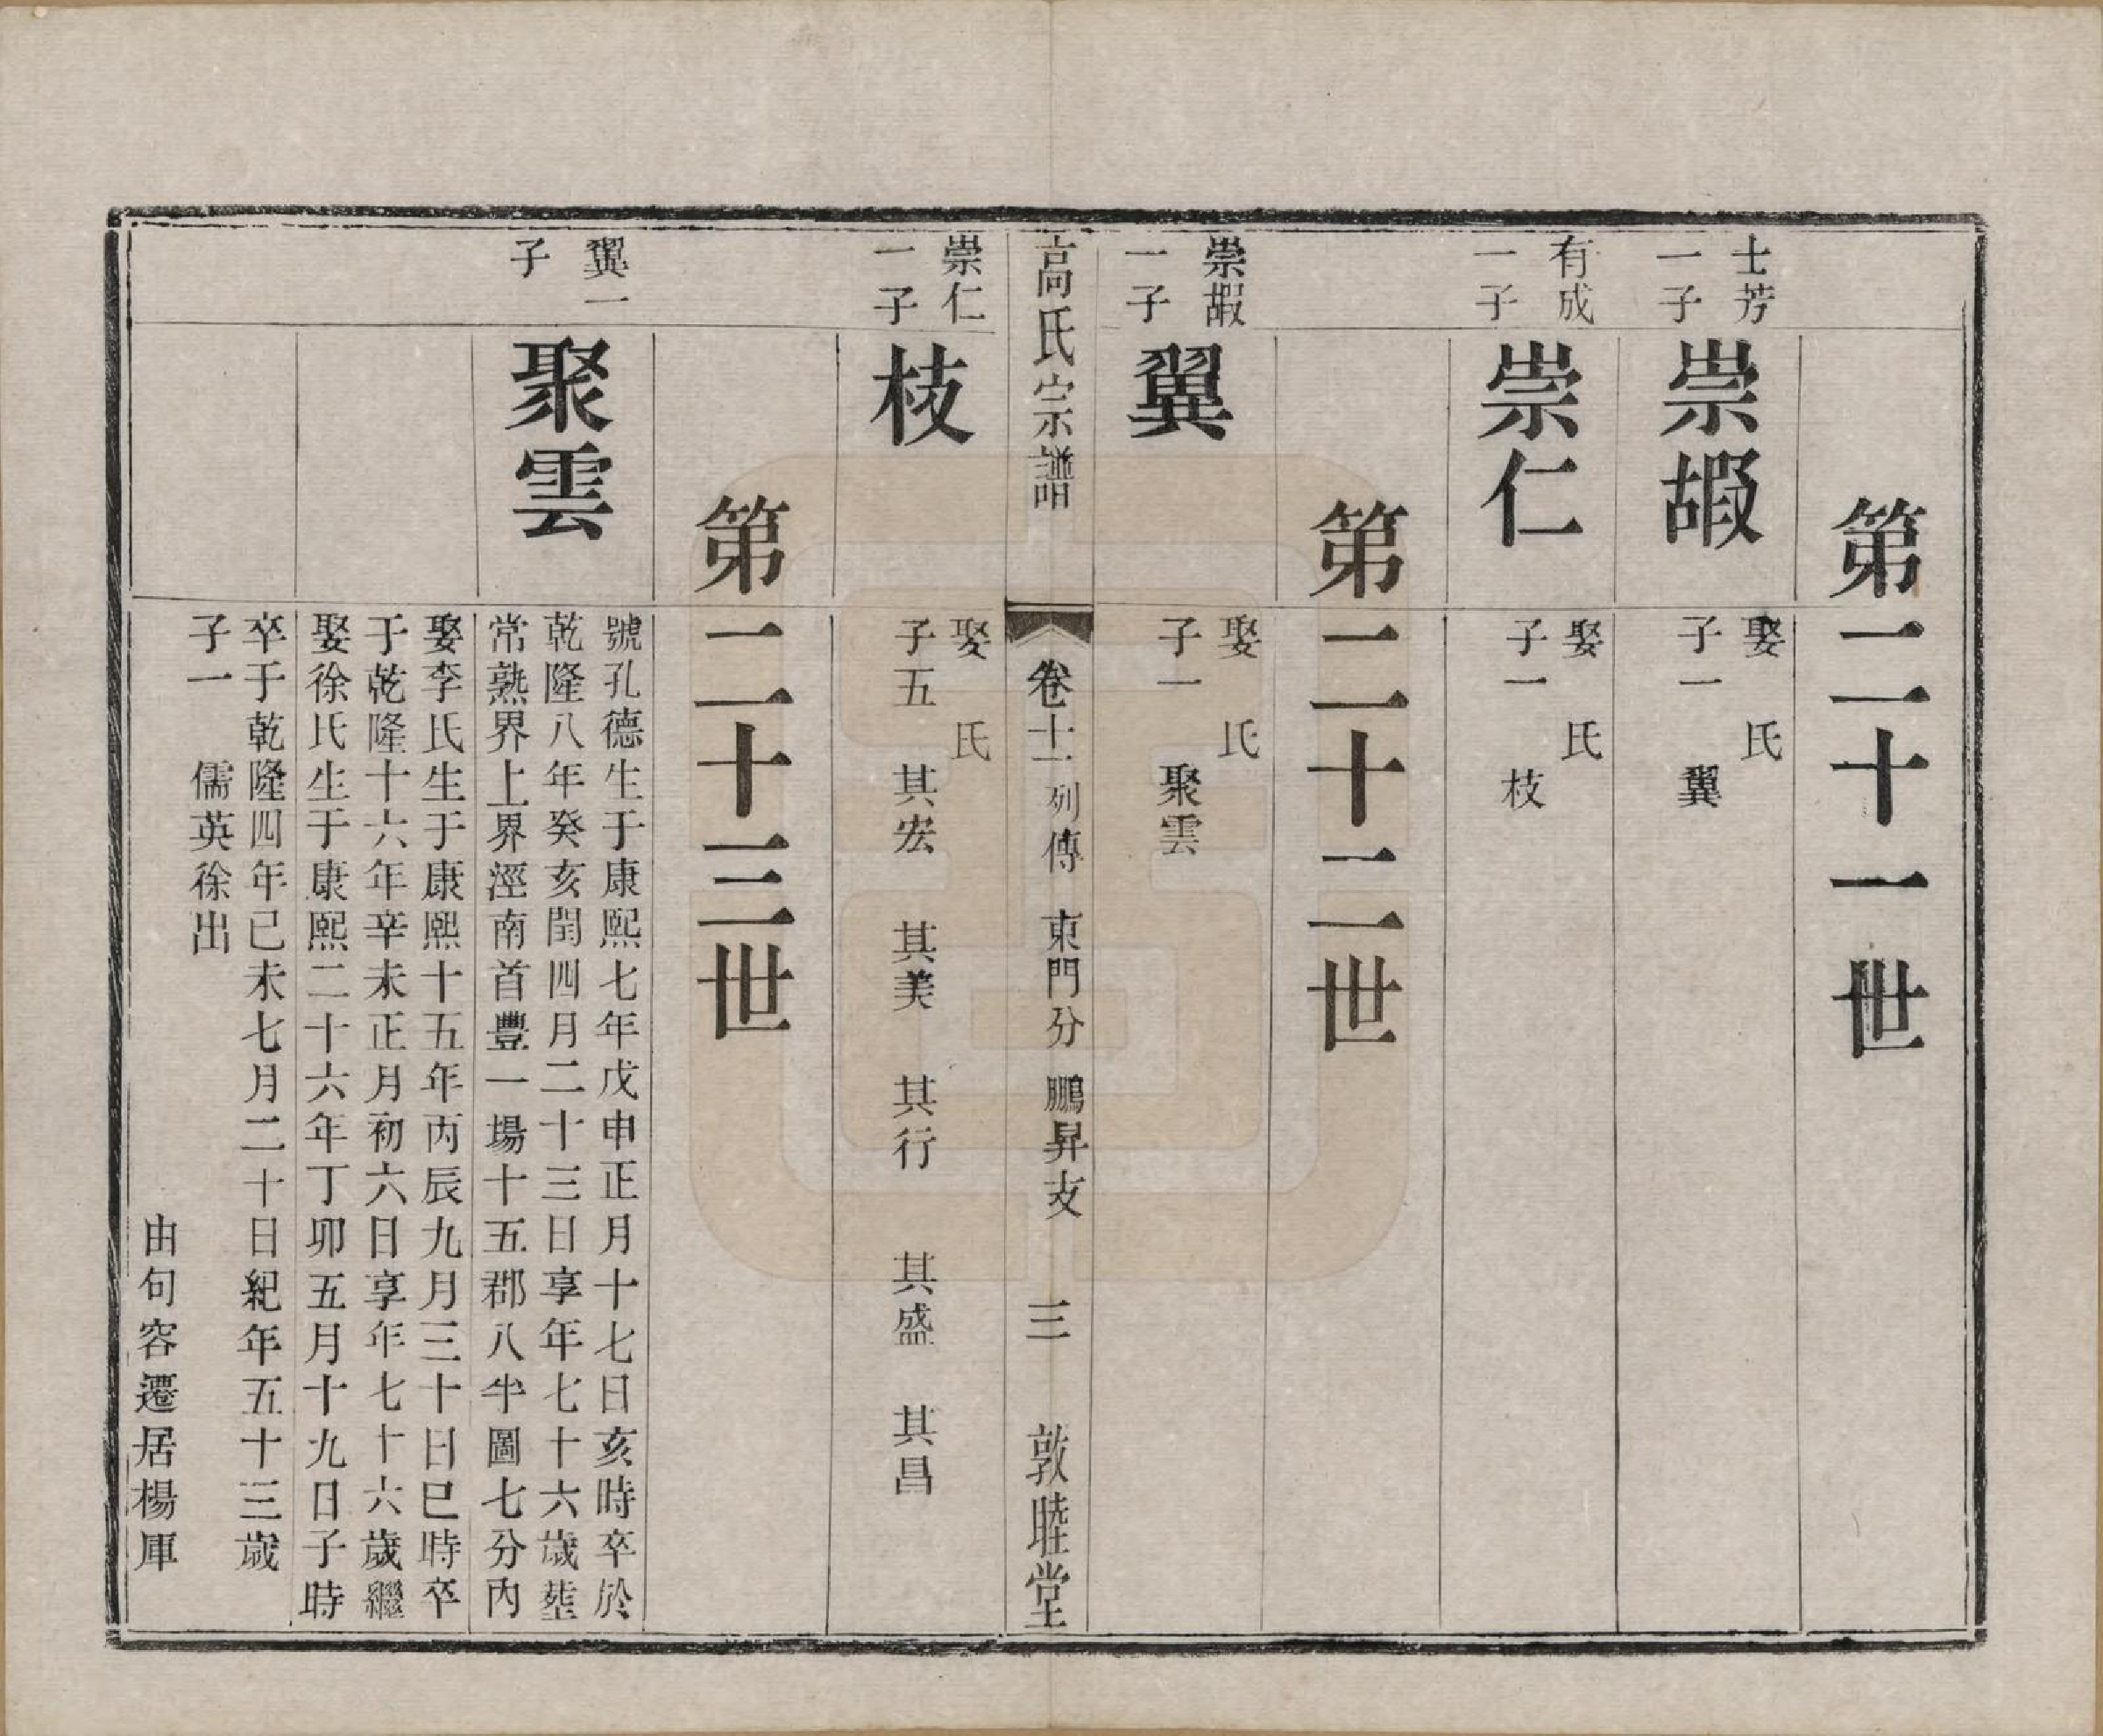 第二十一世
士芳
一子
崇嘏
娶　氏
子一　翼
有成
一子
崇仁
娶　氏
子一　枝
第二十二世
崇嘏
一子
翼
娶　氏
子一　聚雲
高氏宗譜　卷十一　列傳　東門分　鵬昇支　三　敦睦堂
崇仁
一子
枝
娶　氏
子五　其宏　其美　其行　其盛　其昌
第二十三世
翼一
子
聚雲
號孔德生于康熙七年戊申正月十七日亥時卒於
乾隆八年癸亥閏四月二十三日享年七十六歲塟
常熟界上界涇南首豐一場十五都八半圖七分內
娶李氏生于康熙十五年丙辰九月三十日巳時卒
于乾隆十六年辛未正月初六日享年七十六歲繼
娶徐氏生于康熙二十六年丁卯五月十九日子時
卒于乾隆四年己未七月二十日紀年五十三歲
子一　儒英徐出
由句容遷居楊厙